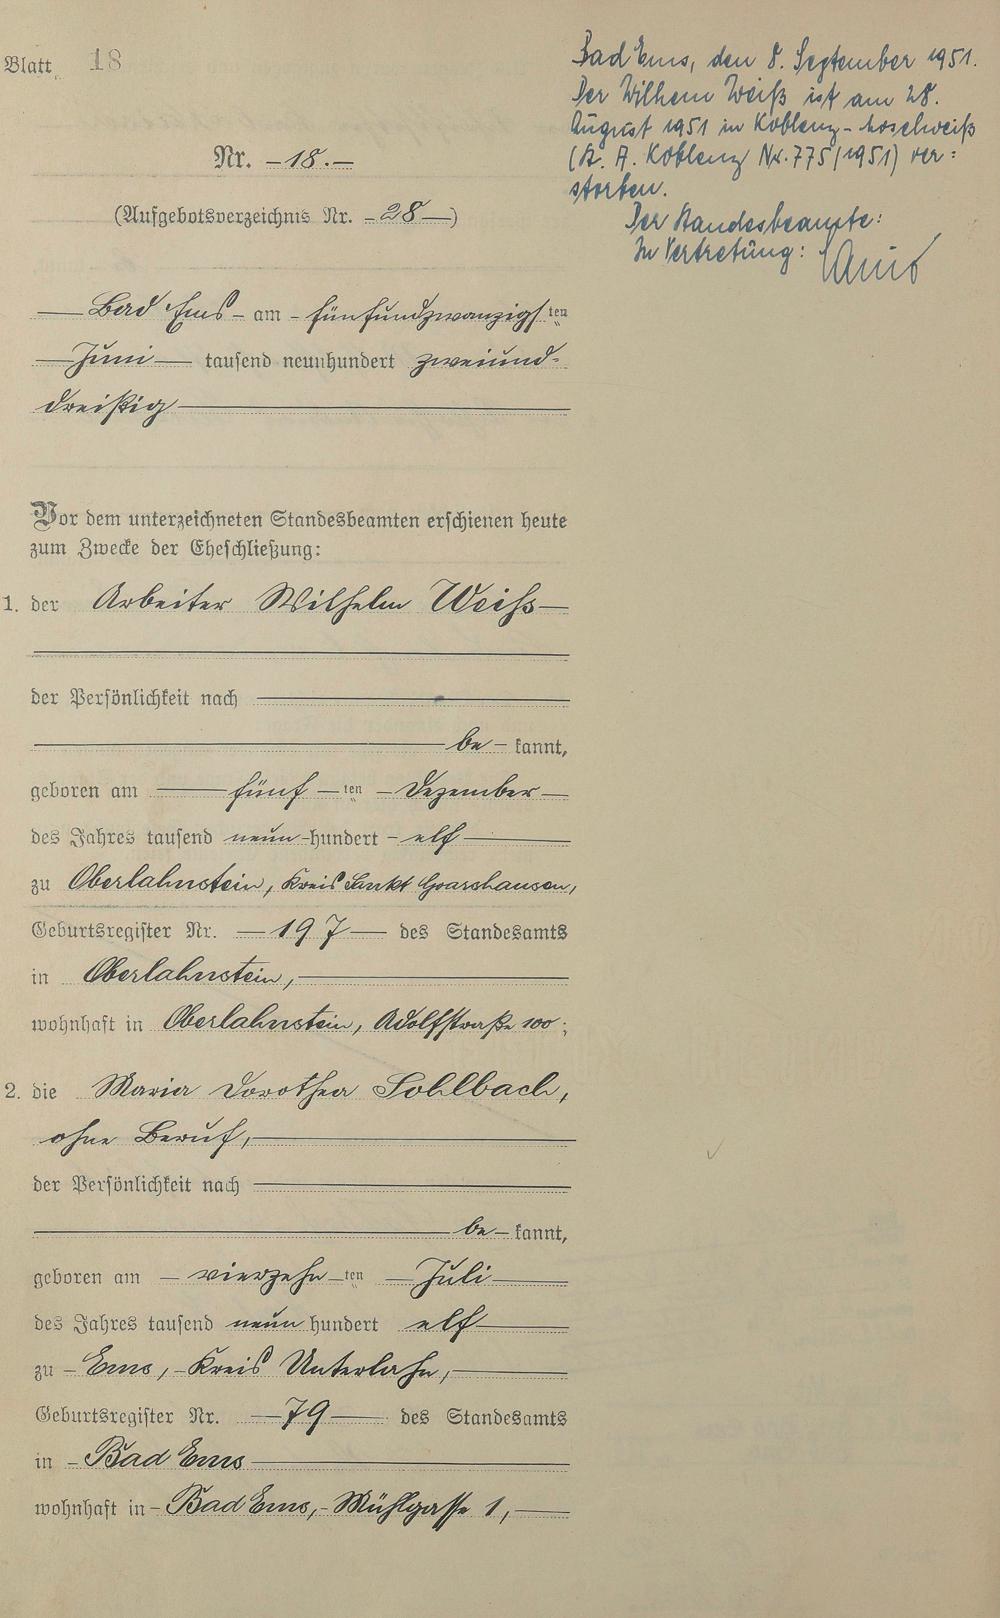 Blatt 18
Nr. -18.-
(Aufgebotsverzeichnis Nr. -28-)
Bad Ems - am - fünfundzwanzigsten
Juni tausend neunhundert zweiund-
dreißig
Vor dem unterzeichneten Standesbeamten erschienen heute
zum Zwecke der Eheschließung:
1. der Arbeiter Wilhelm Weiß
der Persönlichkeit nach
be-kannt,
geboren am fünf ten Dezember
des Jahres tausend neun hundert elf
zu Oberlahnstein, Kreis Sankt Goarshausen,
Geburtsregister Nr. 197 des Standesamts
in Oberlahnstein,
wohnhaft in Oberlahnstein, Adolfstraße 100;
2. die Maria Dorothea Sohlbach,
ohne Beruf,
der Persönlichkeit nach
be-kannt,
geboren am vierzehn ten Juli
des Jahres tausend neun hundert elf
zu Ems, Kreis Unterlahn,
Geburtsregister Nr. 79 des Standesamts
in Bad Ems
wohnhaft in Bad Ems, Mühlgasse 1,
Bad Ems, den 8. September 1951.
Der Wilhem Weiß ist am 28.
August 1951 in Koblenz-Moselweiß
(St. A. Koblenz Nr. 775/1951) ver=
storben.
Der Standesbeamte:
In Vertretung: